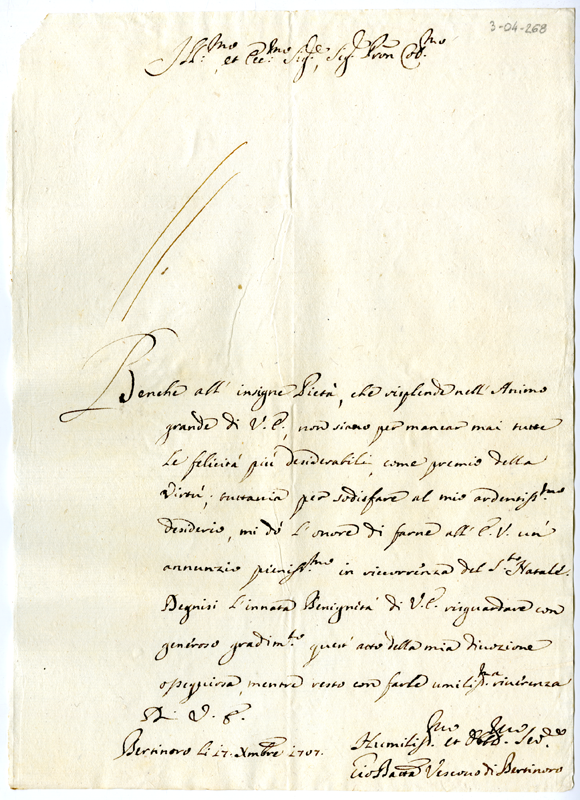 3-04-268
Ill.mo et Ecc.mo Sig.e, Sig. Pron Col.mo
Benche all' insigne Pietà, che risplende nell' Animo
grande di V.E., non siano per mancar mai tutte
le felicità più desiderabili, come premio della
Virtù; tuttavia per sodisfare al mio ardentiss.mo
desiderio, mi dò l'onore di farne all' E.V. un'
annunzio pieniss.mo in ricorrenza del S.to Natale.
Degnisi l'innata Benignità di V.E. risguardare con
generoso gradim.to quest' atto della mia divozione
ossequiosa, mentre resto con farle umiliss.ma riverenza
Di V.E.
Bertinoro li 17. Xmbre 1707.
Humiliss.mo et Obb.mo Ser.re
Gio Batta Vescovo di Bertinoro